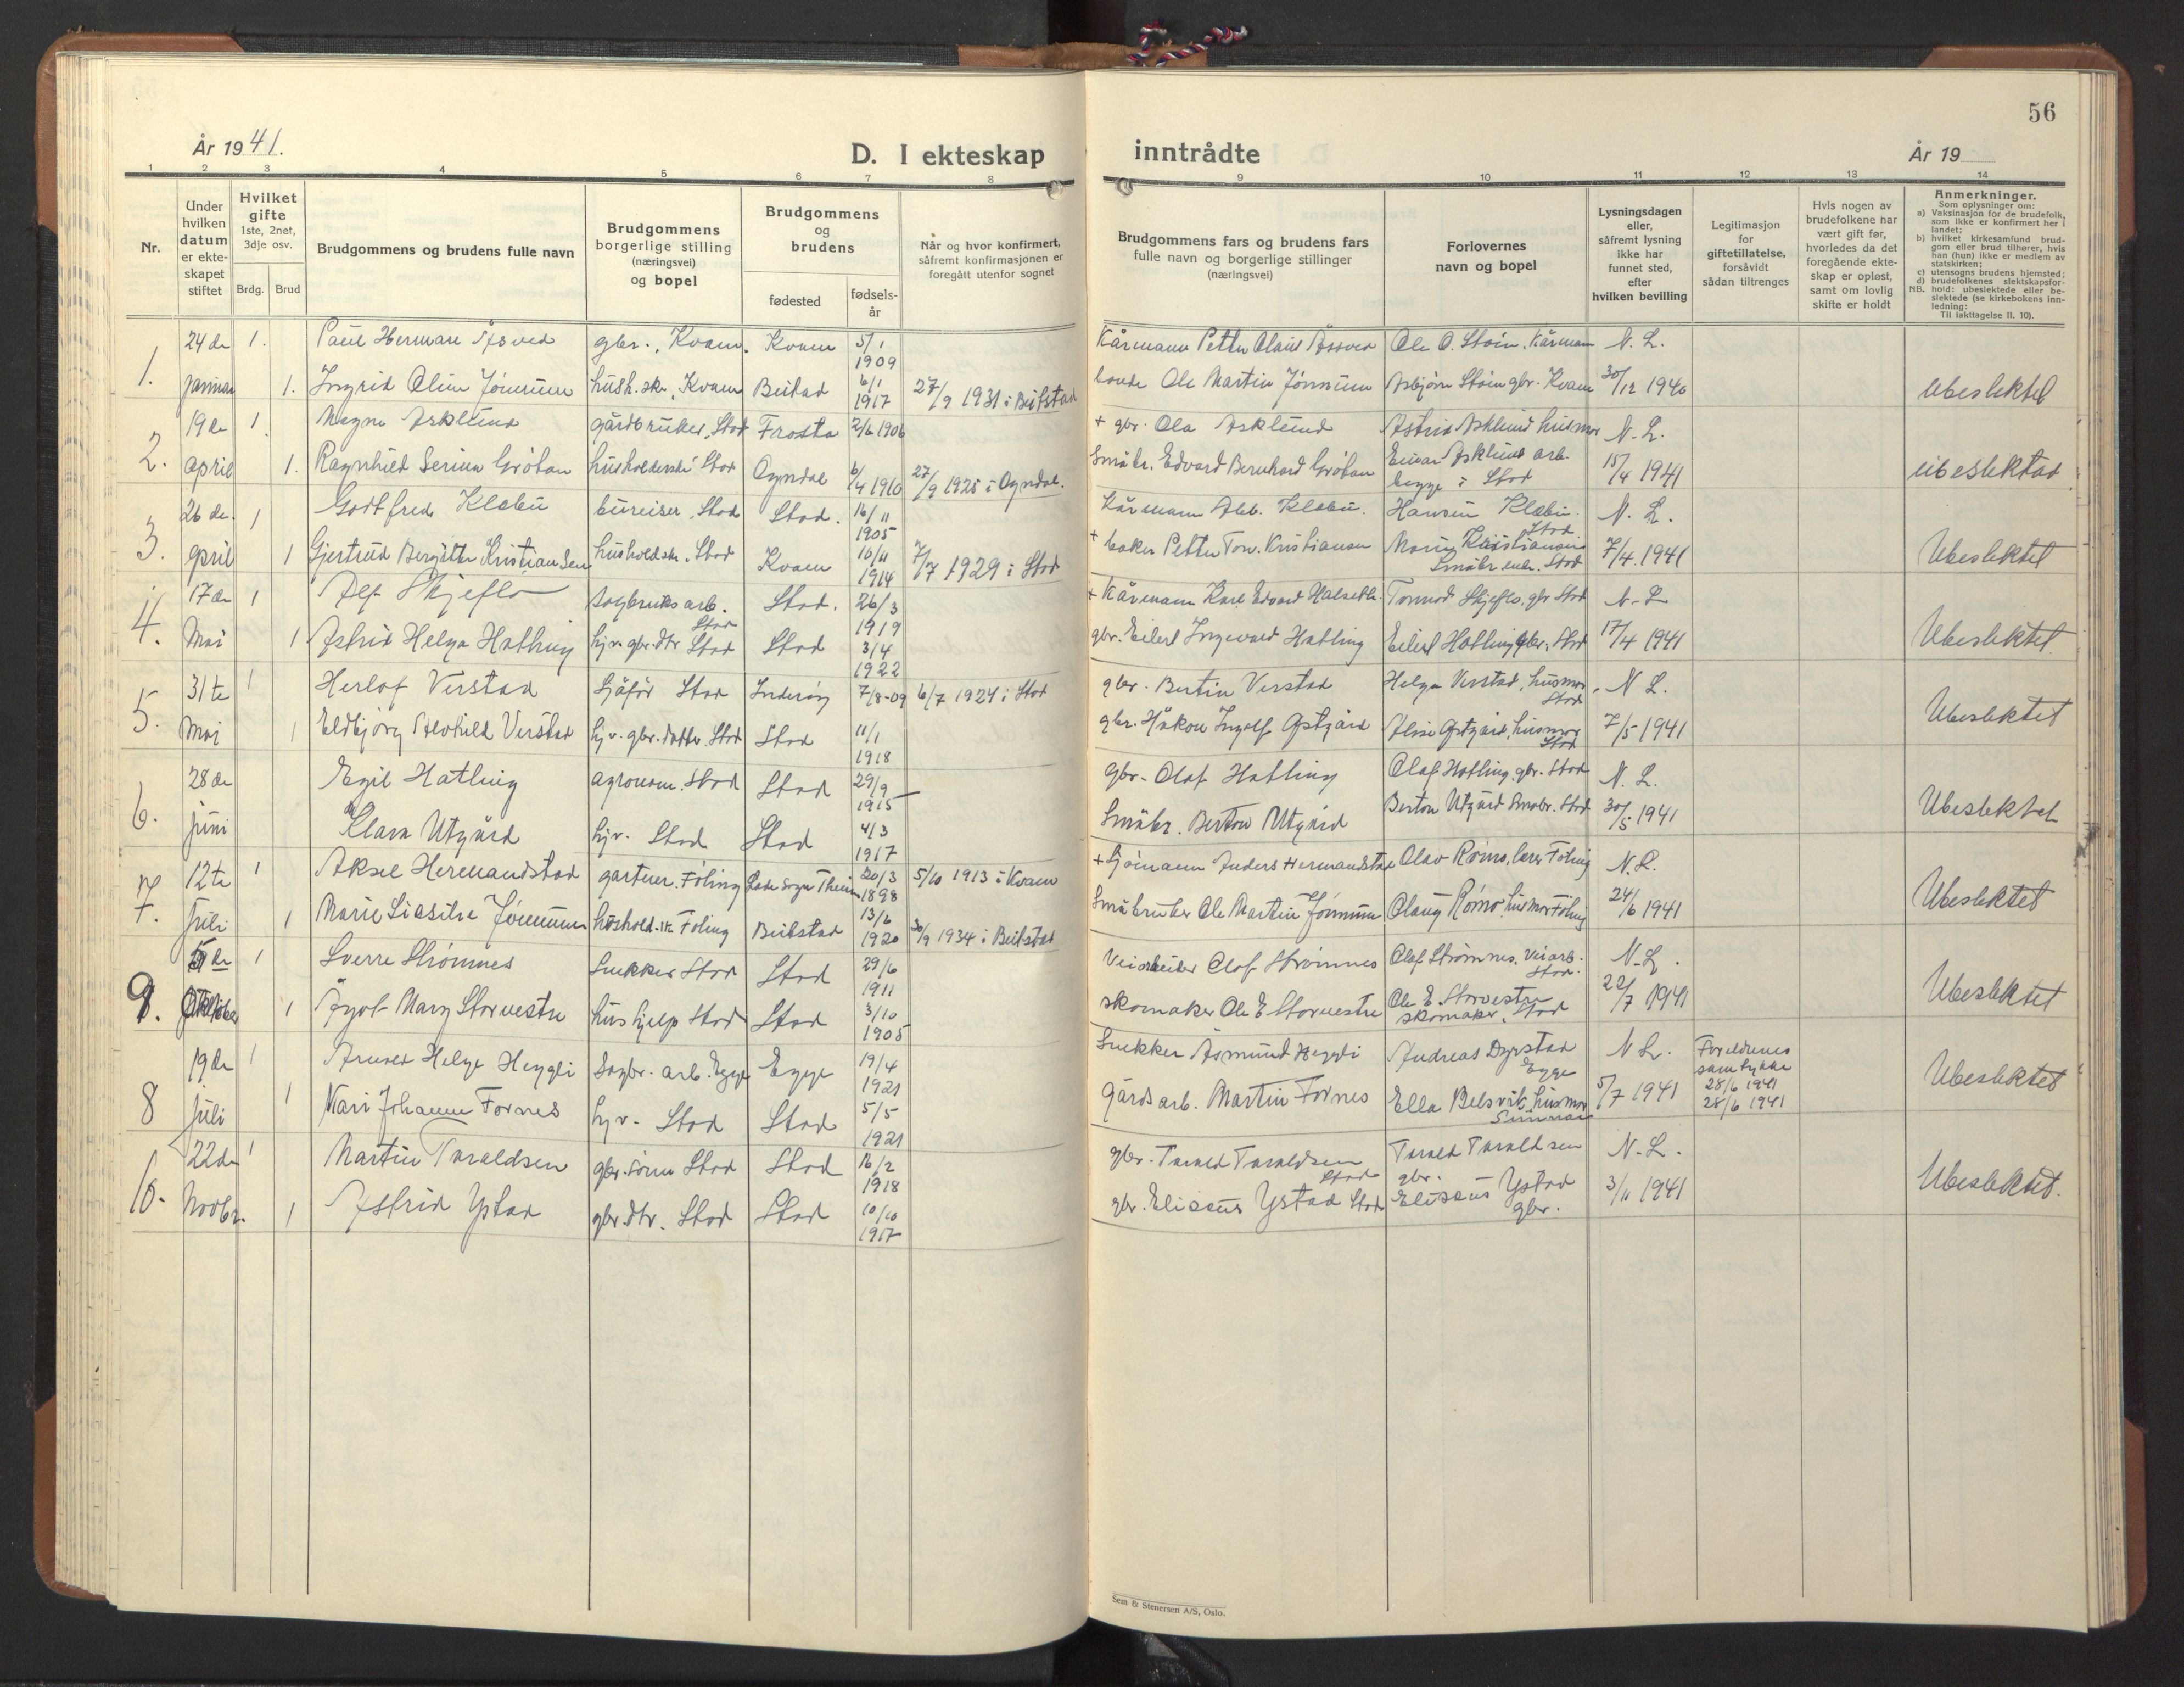 56
År 1941.
D. I ekteskap inntrådte
År 19
1 2 3 4 5 6 7 8 9 10 11 12 13 14
Nr.
Under
hvilken
datum
er ekte-
skapet
stiftet
Hvilket
gifte
1ste, 2net,
3dje osv.
Brdg. Brud
Brudgommens og brudens fulle navn
Brudgommens
borgerlige stilling
(næringsvei)
og bopel
Brudgommens
og
brudens
fødested
fødsels-
år
Når og hvor konfirmert,
såfremt konfirmasjonen er
foregått utenfor sognet
Brudgommens fars og brudens fars
fulle navn og borgerlige stillinger
(næringsvei)
Forlovernes
navn og bopel
Lysningsdagen
eller,
såfremt lysning
ikke har
funnet sted,
efter
hvilken bevilling
Legitimasjon
for
giftetillatelse,
forsåvidt
sådan tiltrenges
Hvis nogen av
brudefolkene har
vært gift før,
hvorledes da det
foregående ekte-
skap er opløst,
samt om lovlig
skifte er holdt
Anmerkninger.
Som oplysninger om:
a) Vaksinasjon for de brudefolk,
som ikke er konfirmert her i
landet;
b) hvilket kirkesamfund brud-
gom eller brud tilhører, hvis
han (hun) ikke er medlem av
statskirken;
c) utensogns brudens hjemsted;
d) brudefolkenes slektskapsfor-
NB. hold: ubeslektede eller be-
slektede (se kirkebokens inn-
ledning:
Til iakttagelse II. 10).
1. 24de 1. Paul Hermann gbr., Kvam. Kvam 5/1 1909 Kårmann Petter Ole O. Støin, Kårmann N. L.
januar 1. Ingrid Oline Jønnum hush.sk., Kvam Beitstad 6/1 1917 27/9 1931 i Beitstad Ole Martin Jønnum Asbjørn Støin gbr. Kvam 30/12 1940 Ubeslektet
2. 19de 1. Magne Asklund gårdbruker, Stod Frosta 2/6 1906 + gbr. Ola Asklund Astrid Asklund husmor N. L.
april 1. Ragnhild Serine Gröhan Stod Ogndal 6/4 1910 27/9 1925 i Ogndal. Småbr. Edvard Bernhard Gröhan Einar Asklund arb. begge i Stod 15/4 1941 ubeslektad
3. 26de. 1 Gottfred Klæbu bureiser, Stod Stod. 16/11 1905 Kårmann Klæbu. Klæbu. Stod N. L.
april 1 Gjertrud Bergitte Kristiansen husholdsk. Stod Kvam 16/11 1914 7/7 1929 i Stod + baker Petter Kristiansen Kristiansen Småbr. enke. Stod 7/4. 1941 Ubeslektet
4. 17de 1 Alf Skjeflo Sagbruks arb. Stod Stod. 26/3 1919 + Kårmann Karl Edvard Tormod Skjeflo, gbr Stod N. L.
Mai 1 Astrid Helga Hatling hjv. gbr. dtr Stod Stod 3/4 1922 gbr. Eilert Ingevard Hatling Eilert Hatling gbr. Stod 17/4 1941 Ubeslektet.
5. 31te 1 Herlof Verstad Sjåfør Stod Inderøy 7/8-09 6/7 1924 i Stod gbr. Bertin Verstad Helga Verstad, husmor, Stod N L.
Mai 1 Eldbjørg Verstad hjv. gbr. datter Stod Stod 11/1 1918 gbr. Håkon Ingolf Østgård Østgård, husmor Stod 7/5 1941 Ubeslektet
6. 28de Egil Hatling agronom. Stod Stod 29/9 1915 gbr. Olaf Hatling Olaf Hatling, gbr. Stod N. L.
juni Klara Utgård hjv. Stod Stod 4/3 1917 Småbr. Berton Utgård Berton Utgård Småbr. Stod 30/5 1941 Ubeslektet
7. 12te 1 Aksel Hermandstad gartner. Føling 20/3 1898 5/10 1913 i Kvam + Sjømann Anders Hermandstad Olav Rømo, Føling N. L.
Juli 1 Marie Jønnum Føling Beitstad 13/6 1920 30/9 1934 i Beitstad Småbruker Ole Martin Jønnum Olaug Rømo husmor Føling 24/6 1941 Ubeslektet
9. 1 Sverre Strømnes Snekker Stod Stod 29/6 1911 Veiarbeider Olaf Strømnes Olaf Strømnes. veiarb. Stod. N. L.
1 Mary Storvestre hushjelp Stod Stod 3/10 1905 skomaker Ole E Storvestre Ole E. Storvestre skomaker, Stod 22/7 1941 Ubeslektet
8 19de 1 Helge Heggli Sagbr. arb. Egge Egge 19/4 1921 Snekker Åsmund Heggli Andreas Dyrstad Egge N L. Foreldrenes samtykke
juli 1 Kari Johanne Fornes hjv. Stod Stod 5/5 1921 Gårdsarb. Martin Fornes Ella Belsvik, husmor 5/7 1941 28/6 1941 28/6 1941 Ubeslektet
10. 22de 1 Martin Taraldsen gbr. sønn Stod Stod 16/2 1918 gbr. Tarald Taraldsen Stod Tarald Taraldsen gbr. N. L.
Novbr. 1 Astrid Ystad gbr. dtr. Stod Stod 10/10 1917 gbr. Eliseus Ystad Stod Eliseus Ystad gbr. 3/11 1941 Ubeslektet.
Sem & Stenersen A/S, Oslo.